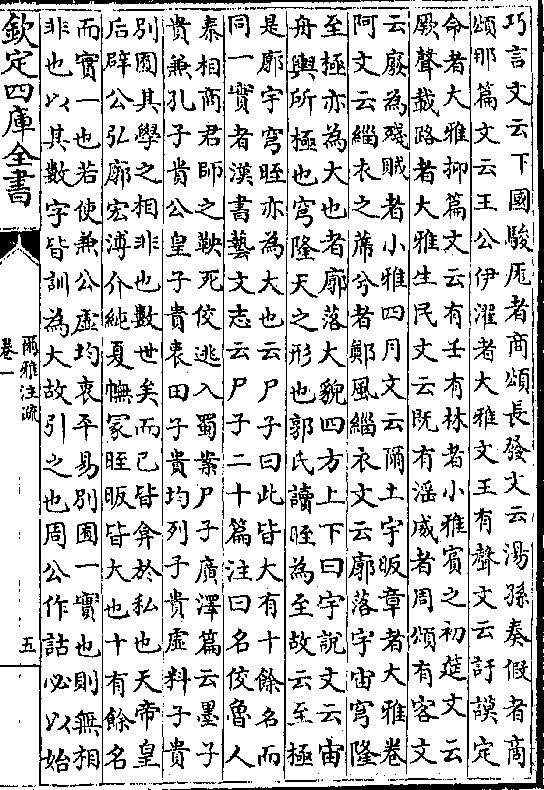 巧言文云下國駿厖者商頌長發文云湯孫奏假者商
頌那篇文云王公伊濯者大雅文王有聲文云訏謨定
命者大雅抑篇文云有壬有林者小雅賓之初筵文云
厥聲載路者大雅生民文云既有淫威者周頌有客文
云廢為殘賊者小雅四月文云爾土宇昄章者大雅卷
阿文云緇衣之蓆兮者鄭風緇衣文云廓落宇宙穹隆
至極亦為大也者廓落大貌四方上下曰宇說文云宙
舟輿所極也穹隆天之形也郭氏讀晊為至故云至極
是廓宇穹晊亦為大也云尸子曰此皆大有十餘名而
同一實者漢書藝文志云尸子二十篇注曰名佼魯人
秦相商君師之鞅死佼逃入蜀案尸子廣澤篇云墨子
貴兼孔子貴公皇子貴衷田子貴均列子貴虛料子貴
別囿其學之相非也數世矣而已皆弇於私也天帝皇
后辟公弘廓宏溥介純夏幠冢晊昄皆大也十有餘名
而實一也若使兼公虛均衷平易別囿一實也則無相
非也以其數字皆訓為大故引之也周公作詁必以始
欽定四庫全書
爾雅注疏
卷一
五